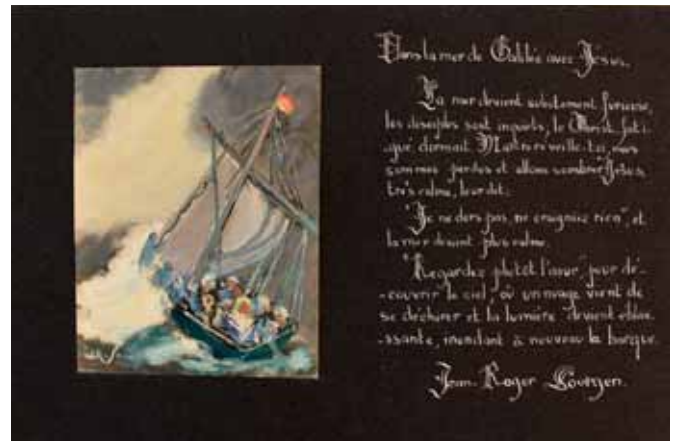 Dans la mer de Galilée avec Jésus.
La mer devient subitement furieuse,
les disciples sont inquiets, le Christ fati-
-gué dormait "Maître réveille-toi, nous
sommes perdus et allons sombrer" Jésus
très calme, leur dit:
"Je ne dors pas, ne craignez rien", et
la mer devint plus calme.
"Regardez plutôt l'azur", pour dé-
-couvrir le ciel, où un nuage vient de
se déchirer et la lumière devient éblou-
-issante, inondant à nouveau la barque.
Jean-Roger